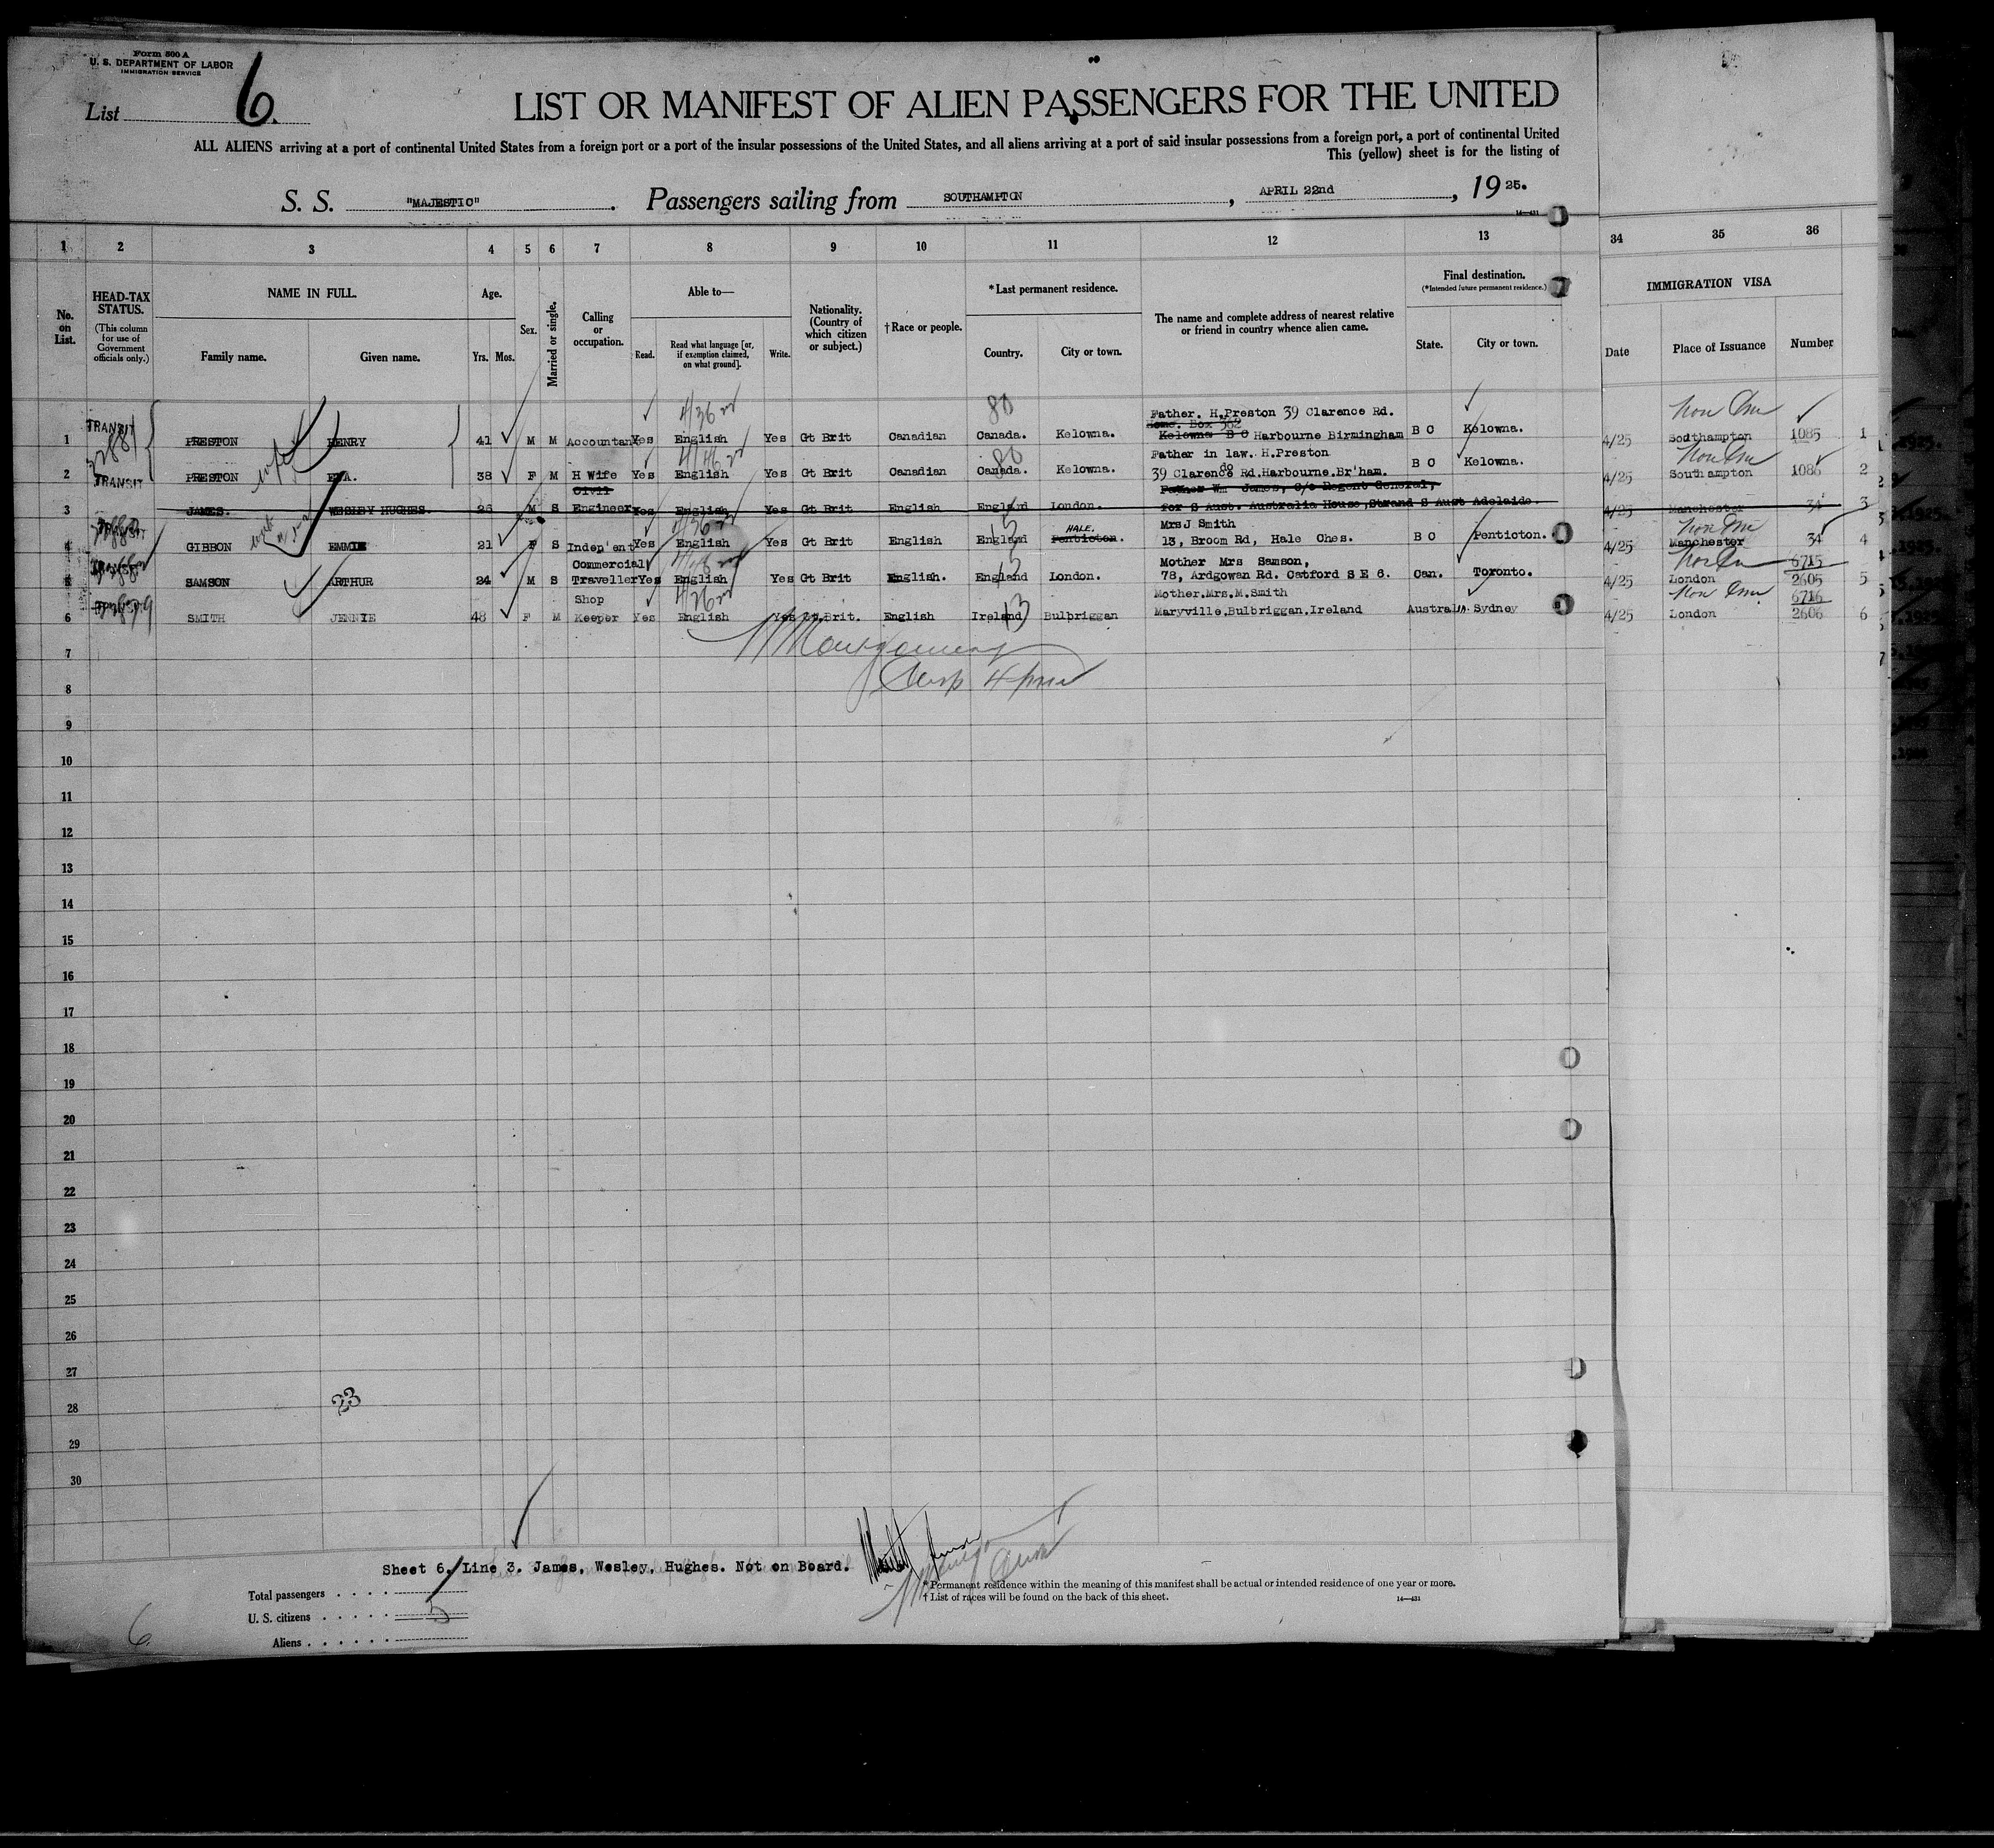 Form 500 A
U. S. DEPARTMENT OF LABOR
IMMIGRATION SERVICE
List 6.
LIST OR MANIFEST OF ALIEN PASSENGERS FOR THE UNITED
ALL ALIENS arriving at a port of continental United States from a foreign port or a port of the insular possessions of the United States, and all aliens arriving at a port of said insular possessions from a foreign port, a port of continental United
This (yellow) sheet is for the listing of
S. S. "MAJESTIC". Passengers sailing from SOUTHAMPTON, APRIL 22nd, 1925.
14—431
1 2 3 4 5 6 7 8 9 10 11 12 13 34 35 36
No. on List.
HEAD-TAX STATUS.
(This column for use of Government officials only.)
NAME IN FULL.
Family name. Given name.
Age.
Yrs. Mos.
Sex.
Married or single.
Calling or occupation.
Able to—
Read. Read what language [or, if exemption claimed, on what ground]. Write.
Nationality. (Country of which citizen or subject.)
†Race or people.
*Last permanent residence.
Country. City or town.
The name and complete address of nearest relative or friend in country whence alien came.
Final destination.
(*Intended future permanent residence.)
State. City or town.
IMMIGRATION VISA
Date Place of Issuance Number
1 TRANSIT PRESTON HENRY 41 M M Accountant Yes English Yes Gt Brit Canadian Canada. Kelowna. Father. H.Preston 39 Clarence Rd. Box 362 Kelowna B C Harbourne Birmingham B C Kelowna. 4/25 Southampton 1085 1
2 TRANSIT PRESTON EVA. 38 F M H Wife Yes English Yes Gt Brit Canadian Canada. Kelowna. Father in law. H.Preston 39 Clarence Rd.Harbourne.Br'ham. B C Kelowna. 4/25 Southampton 1086 2
3 JAMES. WESLEY HUGHES. 26 M S Civil Engineer Yes English Yes Gt Brit English England London. Father Wm James, C/o Regent General, for S Aust. Australia House, Strand S Aust Adelaide. 4/25 Manchester 34 3
4 GIBBON EMMIE 21 F S Indep'ent Yes English Yes Gt Brit English England HALE. Penticton. Mrs J Smith 13, Broom Rd, Hale Ches. B C Penticton. 4/25 Manchester 34 4
5 SAMSON ARTHUR 24 M S Commercial Traveller Yes English Yes Gt Brit English. England London. Mother Mrs Samson, 78, Ardgowan Rd. Catford S E 6. Can. Toronto. 4/25 London 6715 2605 5
6 SMITH JENNIE 48 F M Shop Keeper Yes English Yes Gt.Brit. English Ireland Bulbriggan Mother.Mrs.M.Smith Maryville.Bulbriggan.Ireland Austral Sydney 4/25 London 6716 2606 6
Montgomery
7
8
9
10
11
12
13
14
15
16
17
18
19
20
21
22
23
24
25
26
27
28
29
30
23
Sheet 6. Line 3. James, Wesley, Hughes. Not on Board.
Total passengers
U. S. citizens 5
Aliens
6
* Permanent residence within the meaning of this manifest shall be actual or intended residence of one year or more.
† List of races will be found on the back of this sheet.
14—431